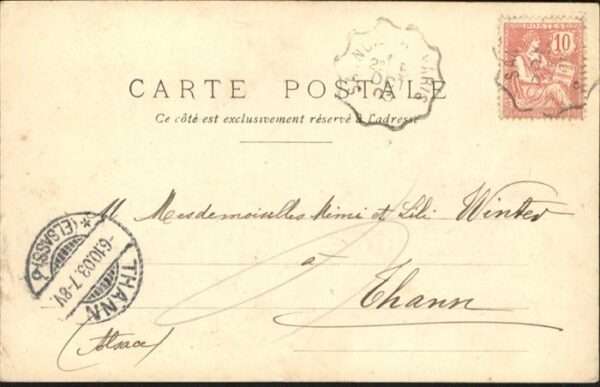 POSTES
10
CARTE POSTALE
Ce côté est exclusivement réservé à l'adresse
M Mesdemoiselles Mimi et Lili Winter
à
Thann
(Alsace)
THANN
-6.10.03.7-8V.
*(ELSASS)